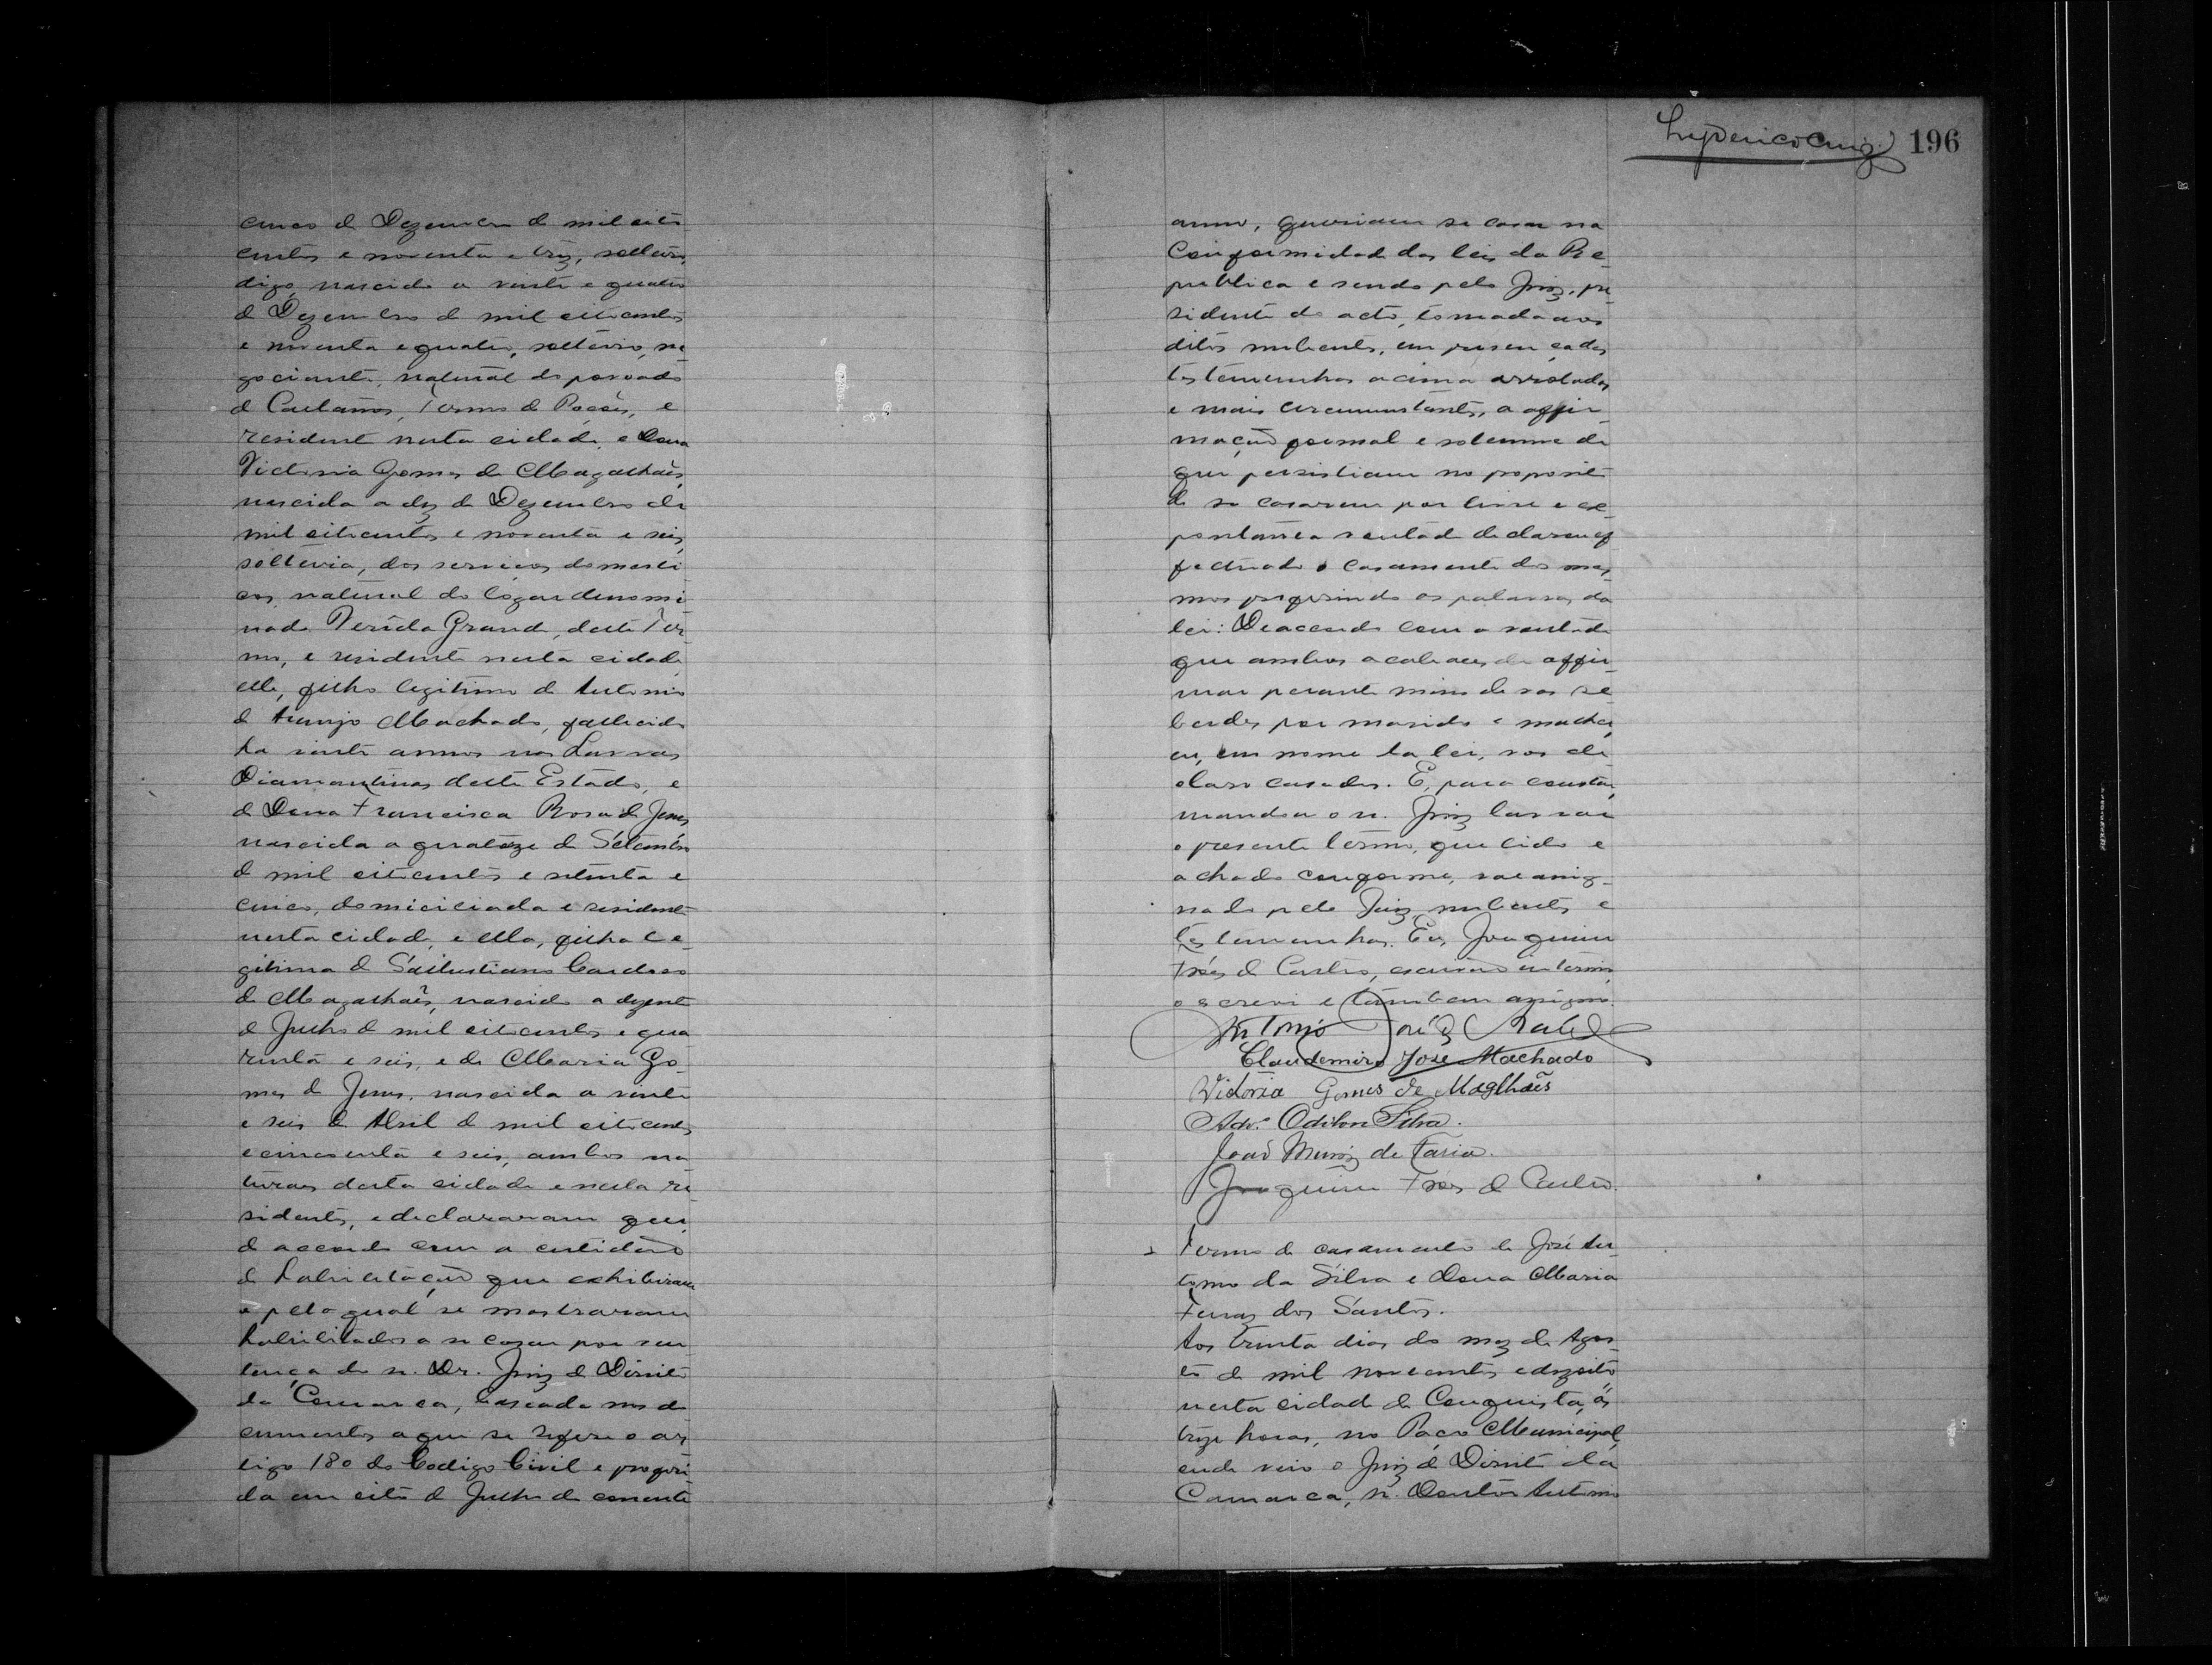 cinco de Dezembro de mil oito
centos e noventa e trez, solteiro,
digo, nascido a vinte e quatro
de Dezembro de mil oitocentos
e noventa e quatro, solteiro, ne
gociante, natural do povoado
de Caetanos, Termo de Poções, e
residente nesta cidade, e Dona
Victoria Gomes de Magalhães,
nascida a dez de Dezembro de
mil oitocentos e noventa e seis,
solteira, dos serviços domesti
cos, natural do logar denomi
nado Vereda Grande, deste Ter
mo, e residente nesta cidade,
elle, filho legitimo de Antonio
de Araujo Machado, fallecido
ha vinte annos nas Lavras
Diamantinas deste Estado, e
de Dona Francisca Rosa de Jesus,
nascida a quatorze de Setembro
de mil oitocentos e setenta e
cinco, domiciliada e residente
nesta cidade, e ella, filha le-
gitima de Sallustiano Cardoso
de Magalhães, nascido a dezenove
de Julho de mil oitocentos e qua
renta e seis, e de Maria Go-
mes de Jesus, nascida a vinte
e seis de Abril de mil oitocentos
e cincoenta e seis, ambos na
turaes desta cidade e nesta re
sidentes, e declararam que,
de accordo com a certidão
de habilitação que exhibiram
e pela qual se mostraram
habilitados a se casar por sen
tença do sr. Dr. Juiz de Direito
da Comarca, baseada nos do
cumentos a que se refere o ar
tigo 180 do Codigo Civil e proferi
da em oito de Julho do corrente
Lyderico Cruz 196
anno, queriam se casar na
conformidade das leis da Re-
publica e sendo pelo Juiz, pre
sidente do acto, tomada aos
ditos nubentes, em presença das
testemunhas acima arroladas
e mais circumstantes, a affir
mação formal e solemne de
que persistiam no proposito
de se casarem por livre e es
pontanea vontade declarou ef
fectuado o casamento dos mes
mos proferindo as palavras da
lei: De accordo com a vontade
que ambos acabaes de affir
mar perante mim de vos re
ceberdes por marido e mulher,
eu, em nome da lei, vos de
claro casados. E, para constar,
mandou o sr. Juiz lavrar
o presente termo, que lido e
achado conforme, vae assig-
nado pelo Juiz, nubentes e
testemunhas. Eu, Joaquim
Fróes de Castro, escrivão interino,
o escrevi e tambem assigno.
Antonio José
Claudemiro José Machado
Victoria Gomes de Maglhães
Adv. Odilon Silva.
João Muniz de Faria.
Joaquim Fróes de Castro.
Termo de casamento de José An-
tonio da Silva e Dona Maria
Ferraz dos Santos.
Aos trinta dias do mez de Agos-
to de mil novecentos e dezoito,
nesta cidade de Conquista, ás
treze horas, no Paço Municipal,
onde veio o Juiz de Direito da
Comarca, sr. Doutor Antonio